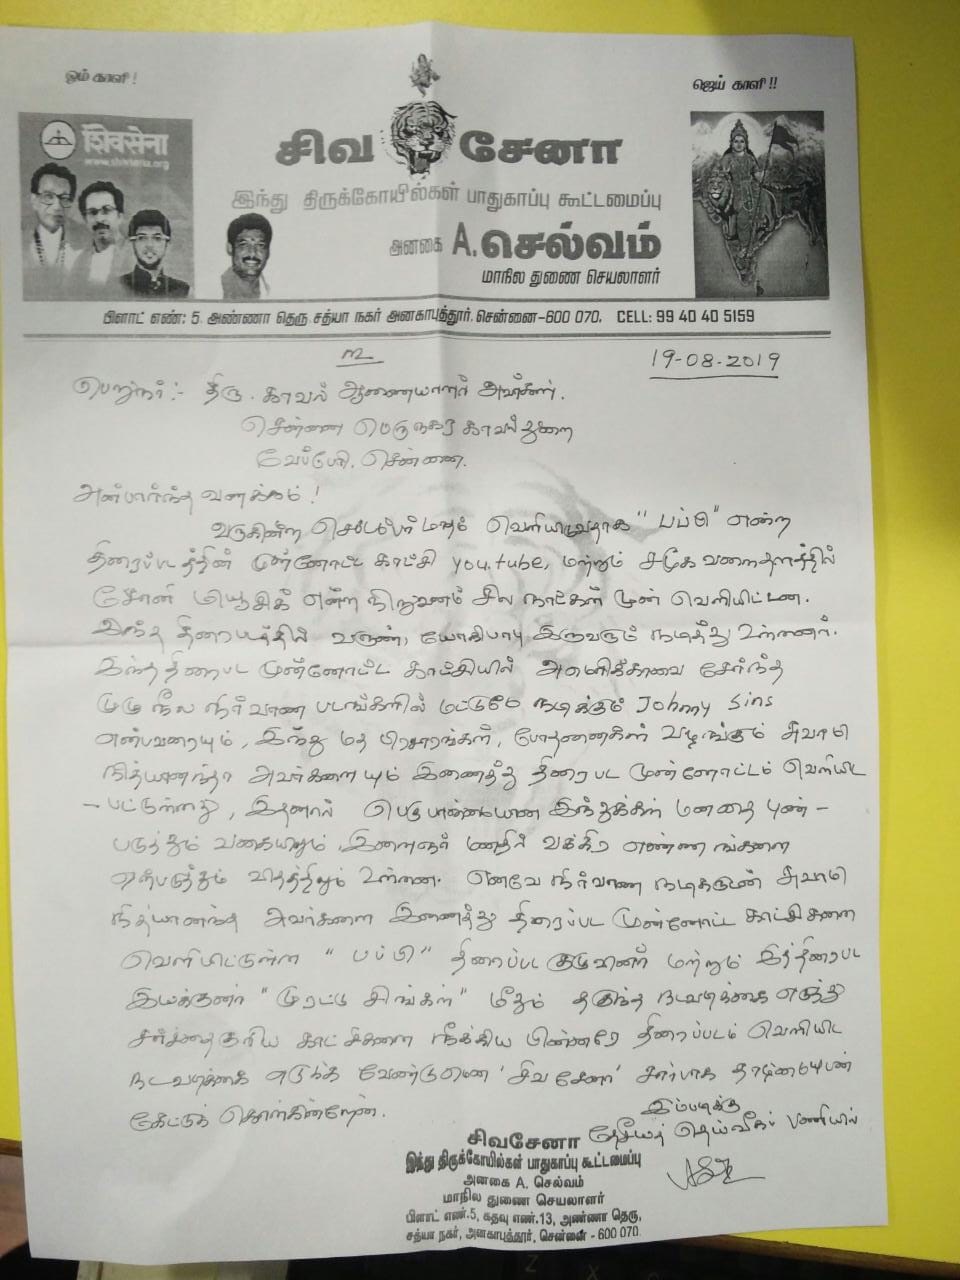 ஓம் காளி !
ஜெய் காளி !!
शिवसेना
www.shivsena.org
சிவ சேனா
இந்து திருக்கோயில்கள் பாதுகாப்பு கூட்டமைப்பு
அனகை A. செல்வம்
மாநில துணை செயலாளர்
பிளாட் எண்: 5, அண்ணா தெரு, சத்யா நகர், அனகாபுத்தூர், சென்னை-600 070, CELL: 99 40 40 5159
உ
19-08-2019
பெறுநர் :- திரு. காவல் ஆணையாளர் அவர்கள்.
சென்னை பெருநகர காவல்துறை
வேப்பேரி, சென்னை.
அன்பார்ந்த வணக்கம் !
வருகின்ற செப்டம்பர் மாதம் வெளியிடுவதாக "பப்பி" என்ற
திரைப்படத்தின் முன்னோட்ட காட்சி youtube, மற்றும் சமூக வலைதளத்தில்
சோனி மியூசிக் என்ற நிறுவனம் சில நாட்கள் முன் வெளியிட்டன.
இந்த திரைப்படத்தில் வருண், யோகிபாபு இருவரும் நடித்து உள்ளனர்.
இந்த திரைபட முன்னோட்ட காட்சியில் அமெரிக்காவை சேர்ந்த
முழு நீல நிர்வாண படங்களில் மட்டுமே நடிக்கும் Johnny Sins
என்பவரையும், இந்து மத பிரசாரங்கள், போதனைகள் வழங்கும் சுவாமி
நித்யானந்தா அவர்களையும் இணைத்து திரைபட முன்னோட்டம் வெளியிட
- பட்டுள்ளது, இதனால் பெரும்பான்மையான இந்துக்கள் மனதை புண் -
படுத்தும் வகையிலும், இளைஞர் மனதில் வக்கிர எண்ணங்களை
ஏற்படுத்தும் விதத்திலும் உள்ளன. எனவே நிர்வாண நடிகருடன் சுவாமி
நித்யானந்த அவர்களை இணைத்து திரைப்பட முன்னோட்ட காட்சிகளை
வெளியிட்டுள்ள "பப்பி" திரைப்பட குழுவினர் மற்றும் இத்திரைபட
இயக்குனர் "முரட்டு சிங்கள்" மீதும் தகுந்த நடவடிக்கை எடுத்து
சர்ச்சைகுரிய காட்சிகளை நீக்கிய பின்னரே திரைப்படம் வெளியிட
நடவடிக்கை எடுக்க வேண்டுமென 'சிவசேனா' சார்பாக தாழ்மையுடன்
கேட்டுக் கொள்கின்றேன்.
இப்படிக்கு
தேசிய தெய்வீகப் பணியில்
சிவசேனா
இந்து திருக்கோயில்கள் பாதுகாப்பு கூட்டமைப்பு
அனகை A. செல்வம்
மாநில துணை செயலாளர்
பிளாட் எண்.5, கதவு எண்.13, அண்ணா தெரு,
சத்யா நகர், அனகாபுத்தூர், சென்னை - 600 070.